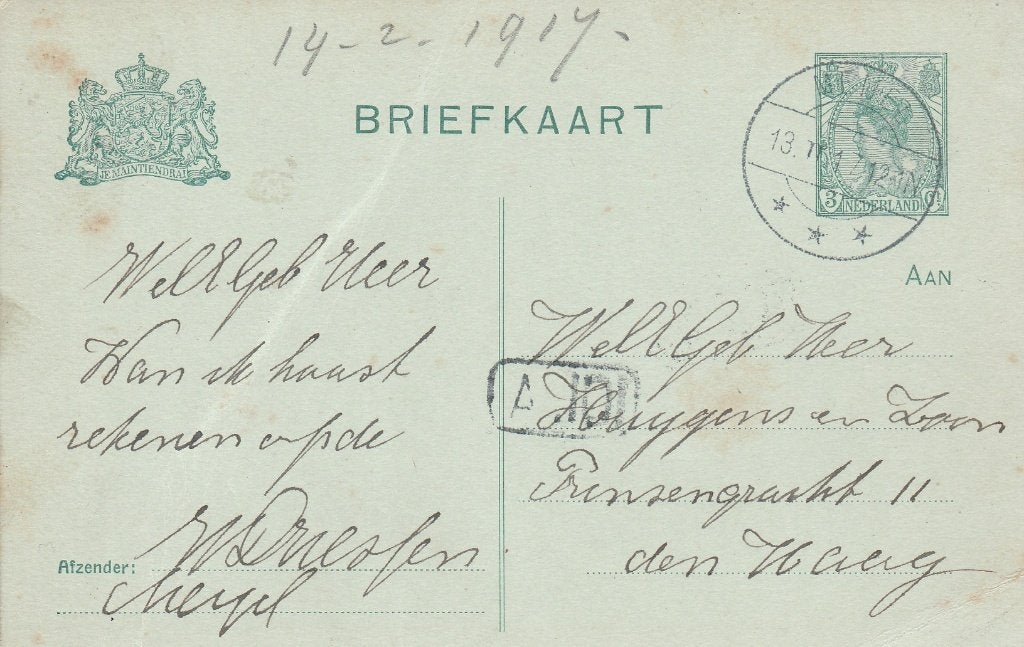 14-2.1917.
JE MAINTIENDRAI
BRIEFKAART
13.II.17 12-1N
3 NEDERLAND Ct
AAN
WelEGeb Heer
Kan ik haast
rekenen op de
Afzender: W Driessen
Meyel
WelEGeb Heer
A
Huygens en Zoon
Prinsengracht 11
den Haag